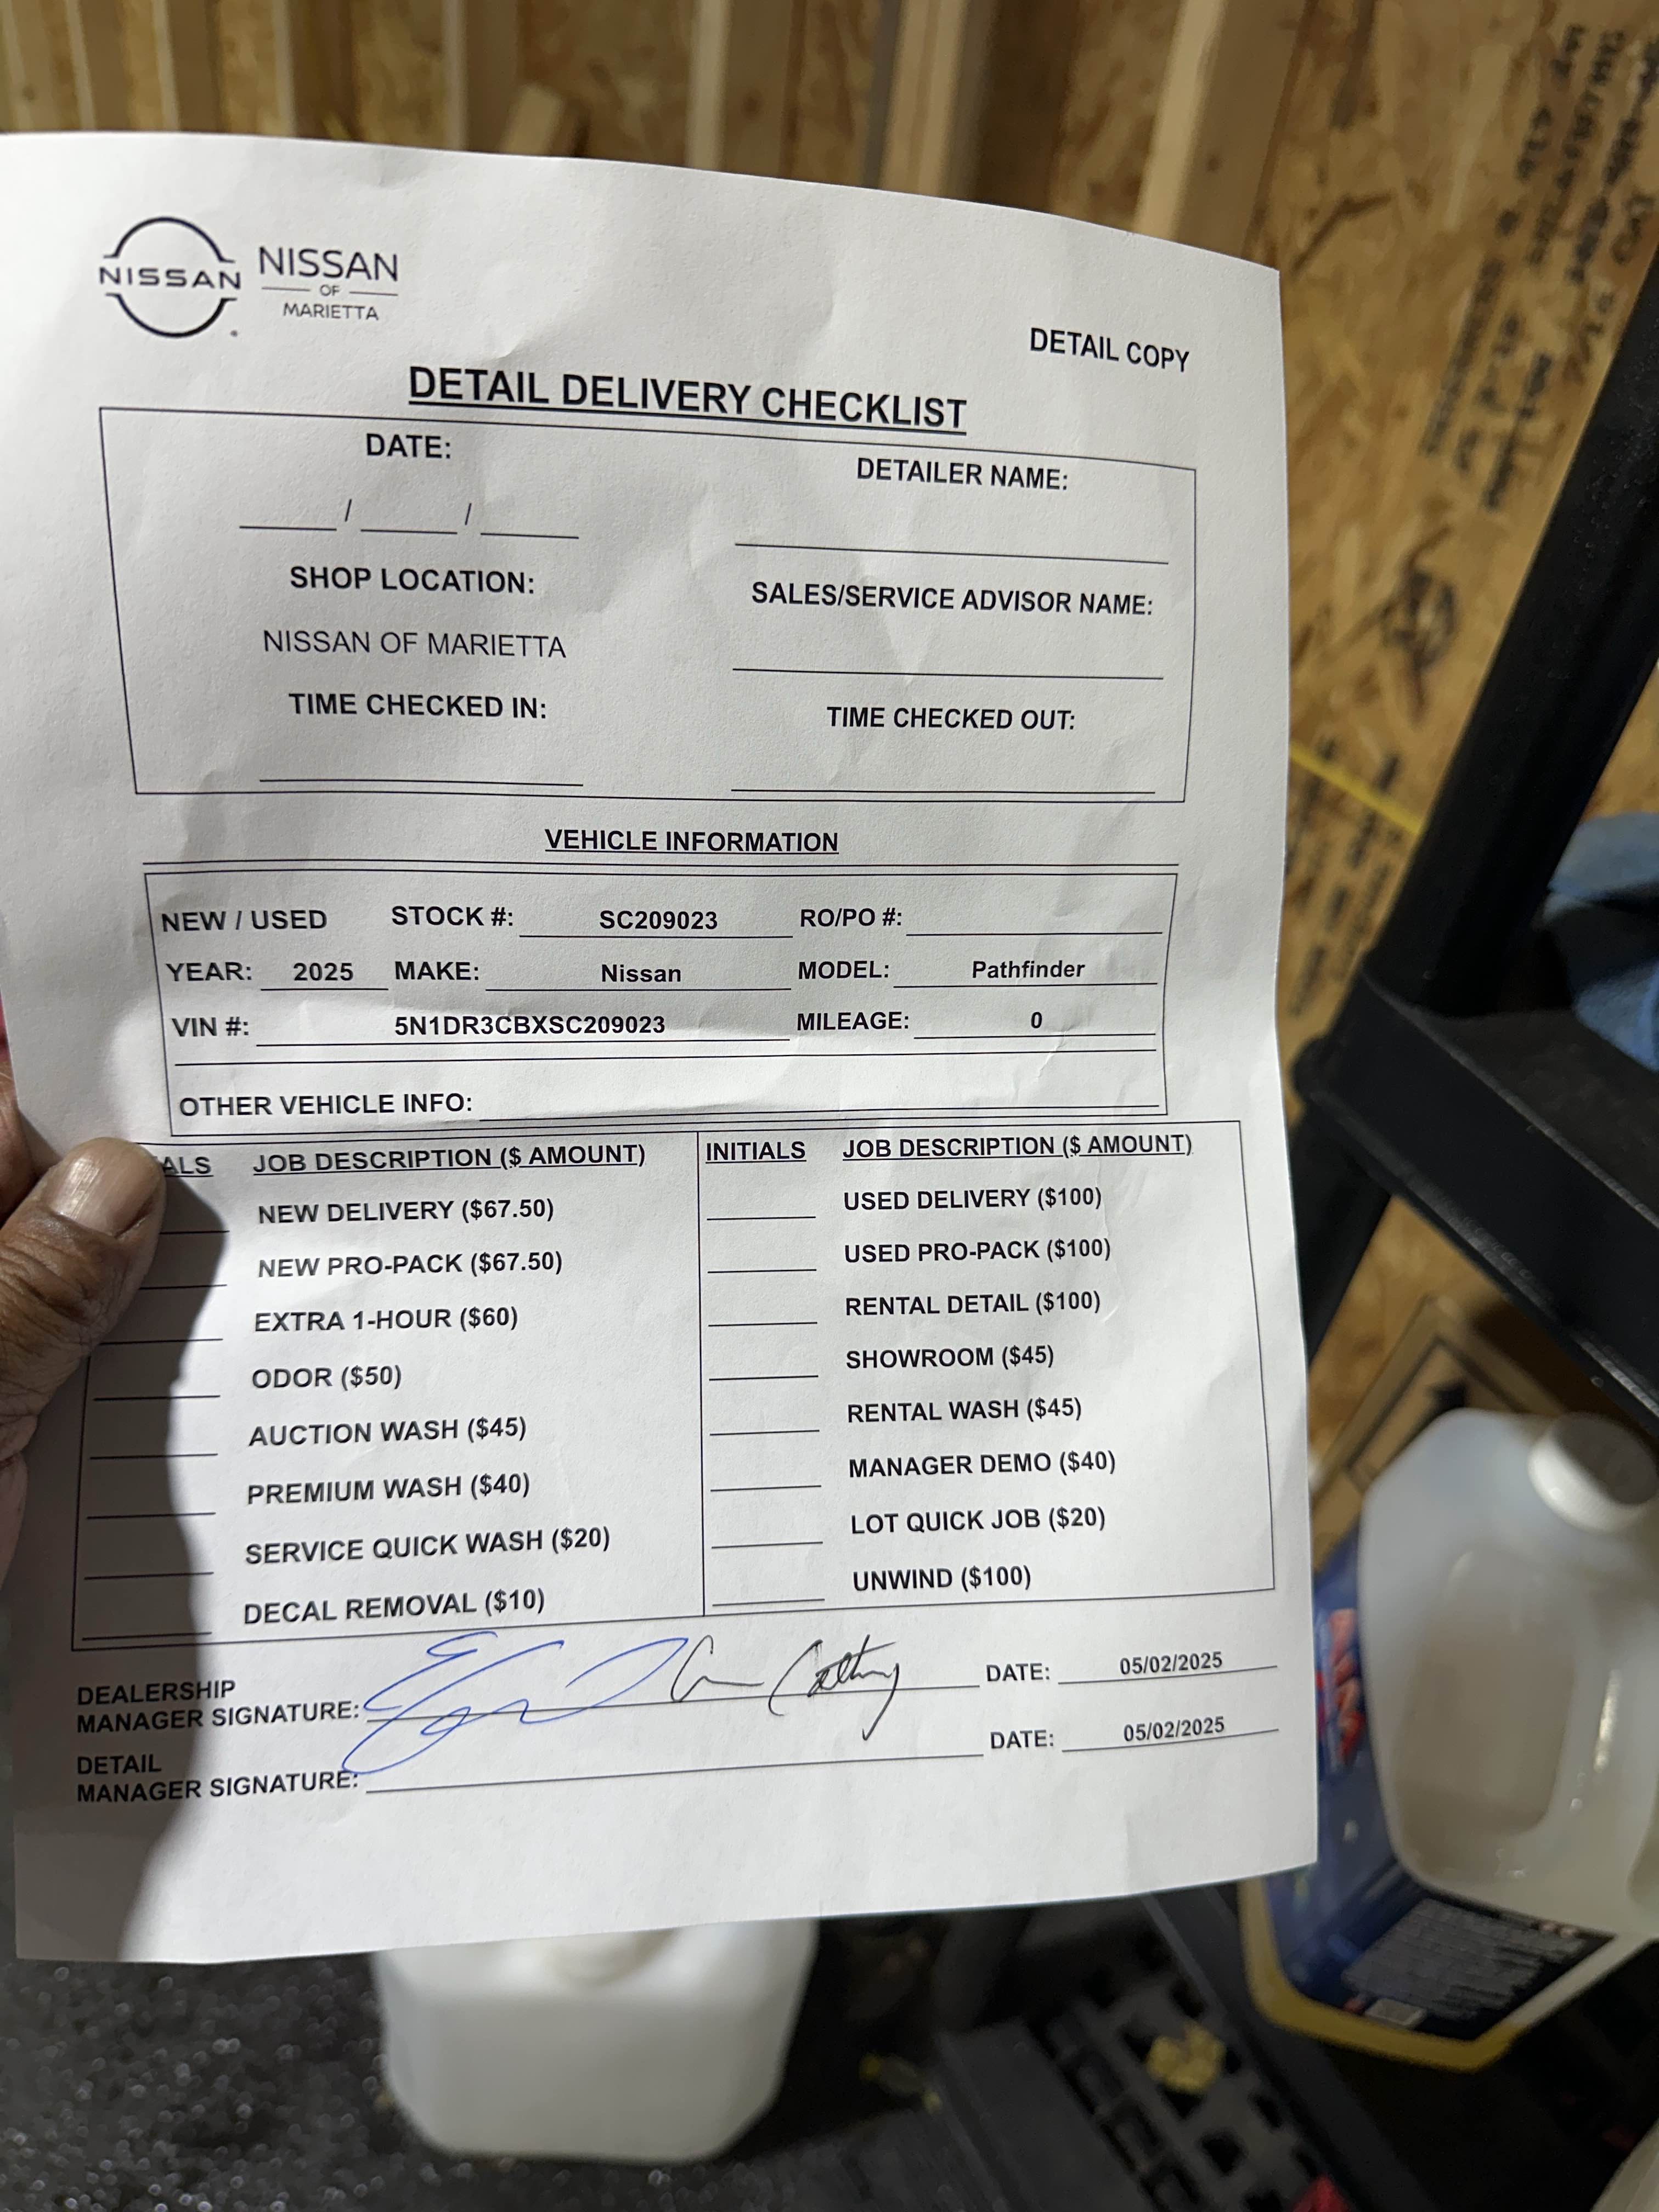 NISSAN
NISSAN
OF
MARIETTA
DETAIL COPY
DETAIL DELIVERY CHECKLIST
DATE:
DETAILER NAME:
____ / ____ / ____
SHOP LOCATION:
SALES/SERVICE ADVISOR NAME:
NISSAN OF MARIETTA
TIME CHECKED IN:
TIME CHECKED OUT:
VEHICLE INFORMATION
NEW / USED STOCK #: SC209023 RO/PO #:
YEAR: 2025 MAKE: Nissan MODEL: Pathfinder
VIN #: 5N1DR3CBXSC209023 MILEAGE: 0
OTHER VEHICLE INFO:
ALS JOB DESCRIPTION ($ AMOUNT) INITIALS JOB DESCRIPTION ($ AMOUNT)
NEW DELIVERY ($67.50) USED DELIVERY ($100)
NEW PRO-PACK ($67.50) USED PRO-PACK ($100)
EXTRA 1-HOUR ($60) RENTAL DETAIL ($100)
ODOR ($50) SHOWROOM ($45)
AUCTION WASH ($45) RENTAL WASH ($45)
PREMIUM WASH ($40) MANAGER DEMO ($40)
SERVICE QUICK WASH ($20) LOT QUICK JOB ($20)
DECAL REMOVAL ($10) UNWIND ($100)
DEALERSHIP
MANAGER SIGNATURE: DATE: 05/02/2025
DETAIL
MANAGER SIGNATURE: DATE: 05/02/2025